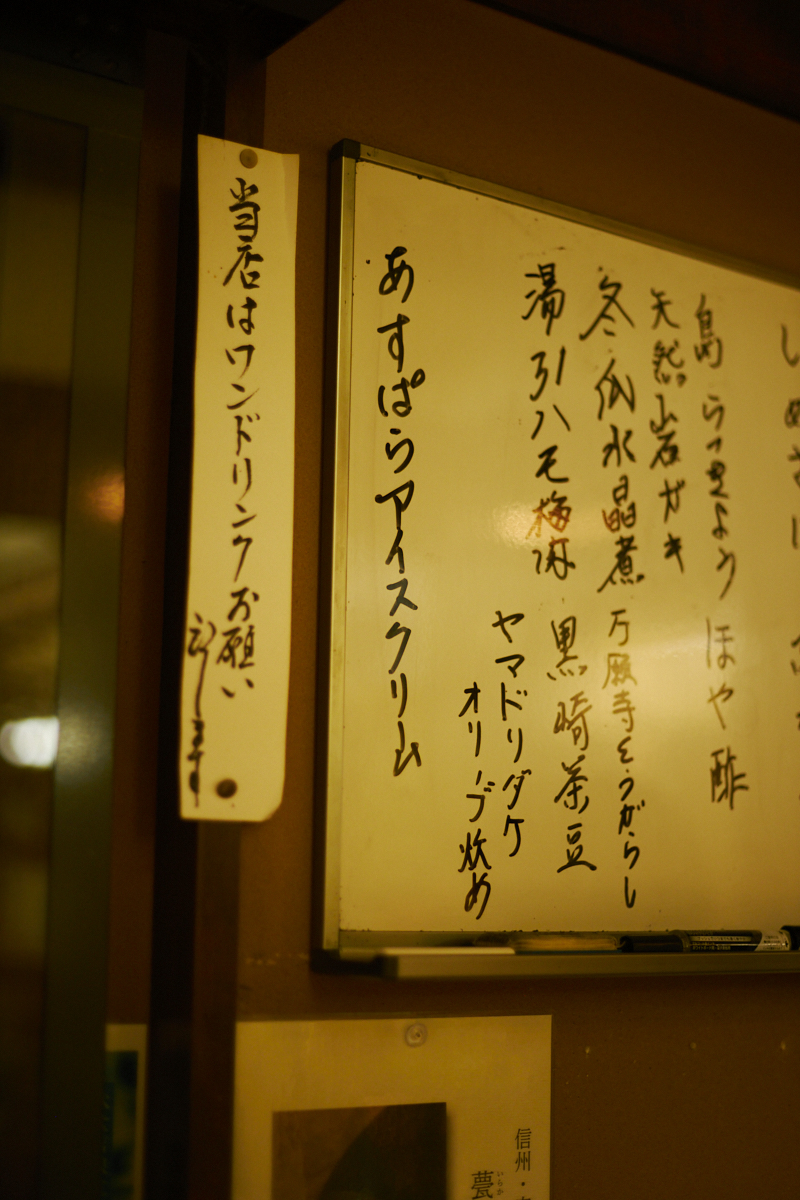 島らっきょう ほや酢
天然岩ガキ
冬瓜水晶煮 万願寺とうがらし
湯引ハモ梅肉 黒崎茶豆
ヤマドリダケ
オリーブ炒め
あすぱらアイスクリーム
当店はワンドリンクお願い
しめさ
信州・
甍
いらか